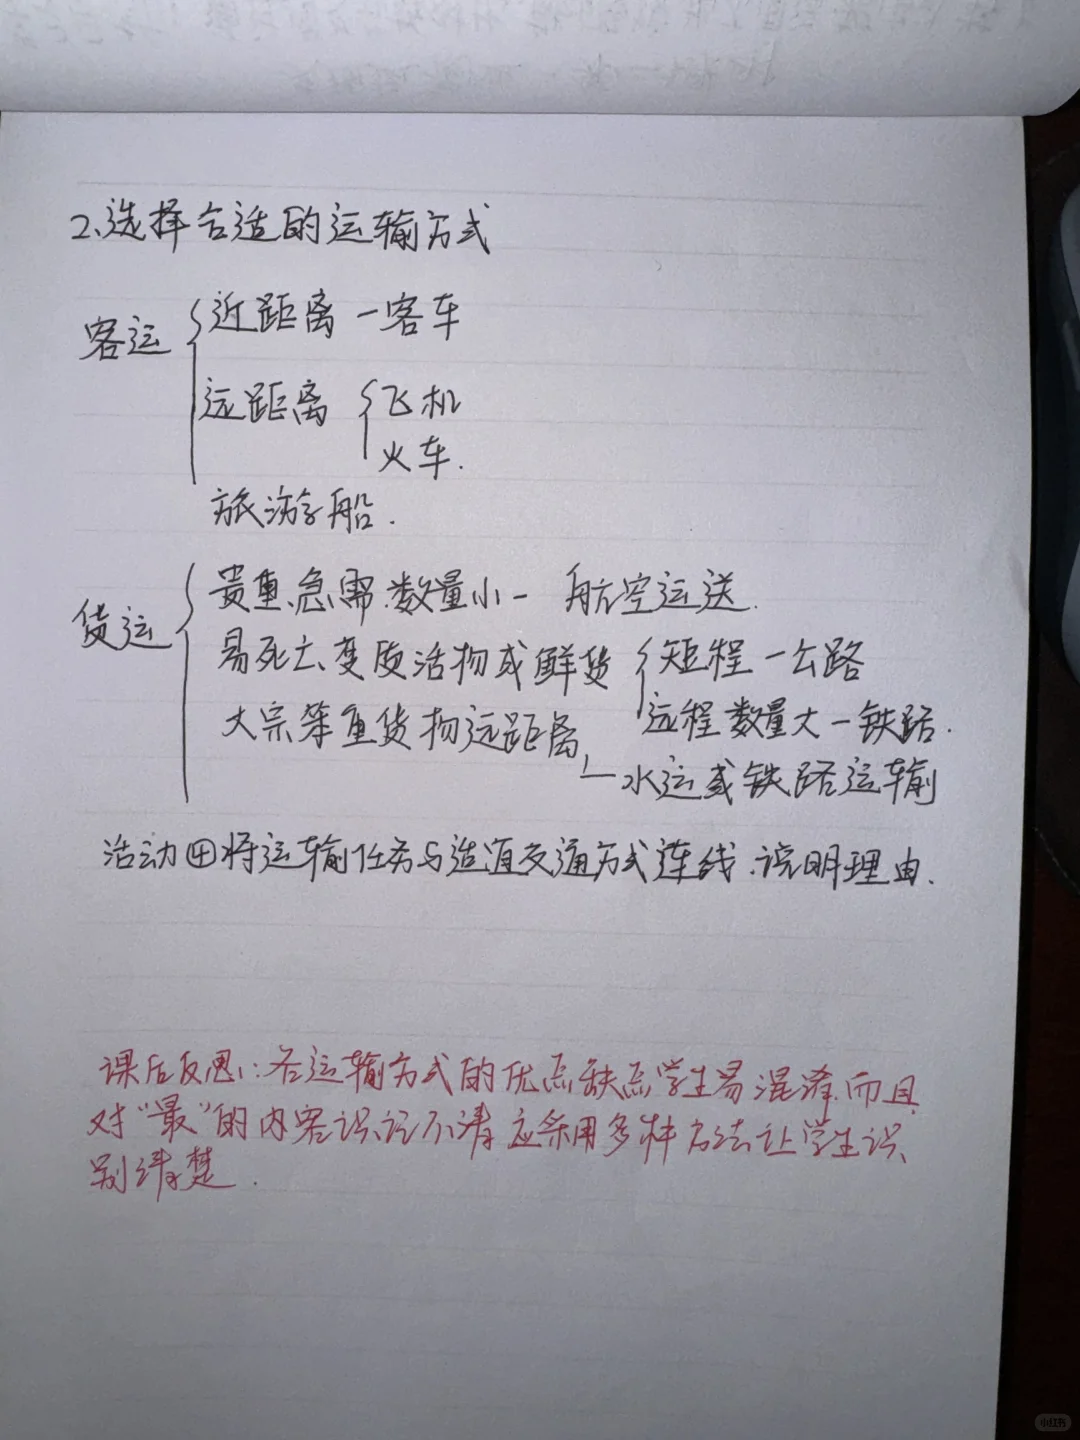 2、选择合适的运输方式
客运 近距离 — 客车
远距离 飞机
火车.
旅游船.
货运 贵重、急需、数量小 — 航空运送.
易死亡、变质活物或鲜货 短程 — 公路
远程数量大 — 铁路.
大宗笨重货物远距离
— 水运或铁路运输
活动④将运输任务与适宜交通方式连线.说明理由.
课后反思:各运输方式的优点缺点学生易混淆.而且
对“最”的内容识记不清应采用多种方法让学生识
别清楚.
小红书